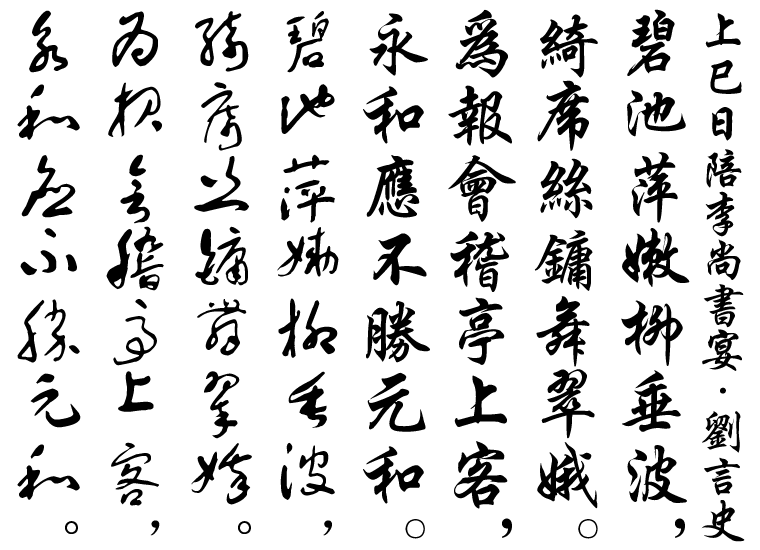 上巳日陪李尚書宴·劉言史
碧池萍嫩柳垂波，
綺席絲鏞舞翠娥。
爲報會稽亭上客，
永和應不勝元和。
碧池萍嫩柳垂波，
綺席絲鏞舞翠娥。
爲報會稽亭上客，
永和應不勝元和。